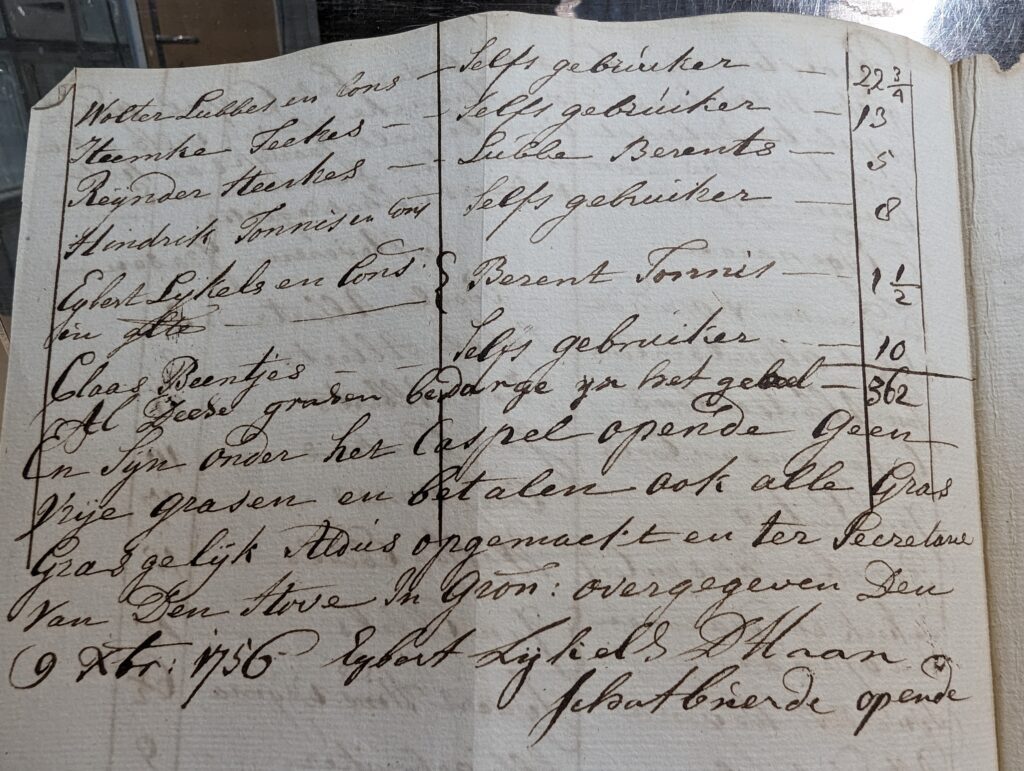 Wolter Lubbes en Cons — Selfs gebruiker — 22 3/4
Heemke Feekes — — Selfs gebruiker — 13
Reijnder Heerkes — — Lubbe Berents — 5
Hindrik Tonnis en Cons Selfs gebruiker — 8
Egbert Lijkels en Cons. } Berent Tonnis — 1 1/2
en
Claas Beentjes — — Selfs gebruiker — 10
Al Deese grasen bedarge in het geheel — 362
En Sijn onder het Caspel opende Geen
Vrije grasen en betalen ook alle Gras
Gras gelijk Aldus opgemackt en ter Secretarie
Van Den Hove In Gron: overgegeven Den
9 Xbr: 1756 Egbert Lijkels D Haan
Schatbeurde opende